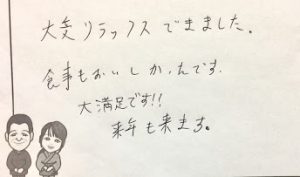 大変リラックスできました。
食事もおいしかったです。
大満足です!!
来年も来ます。